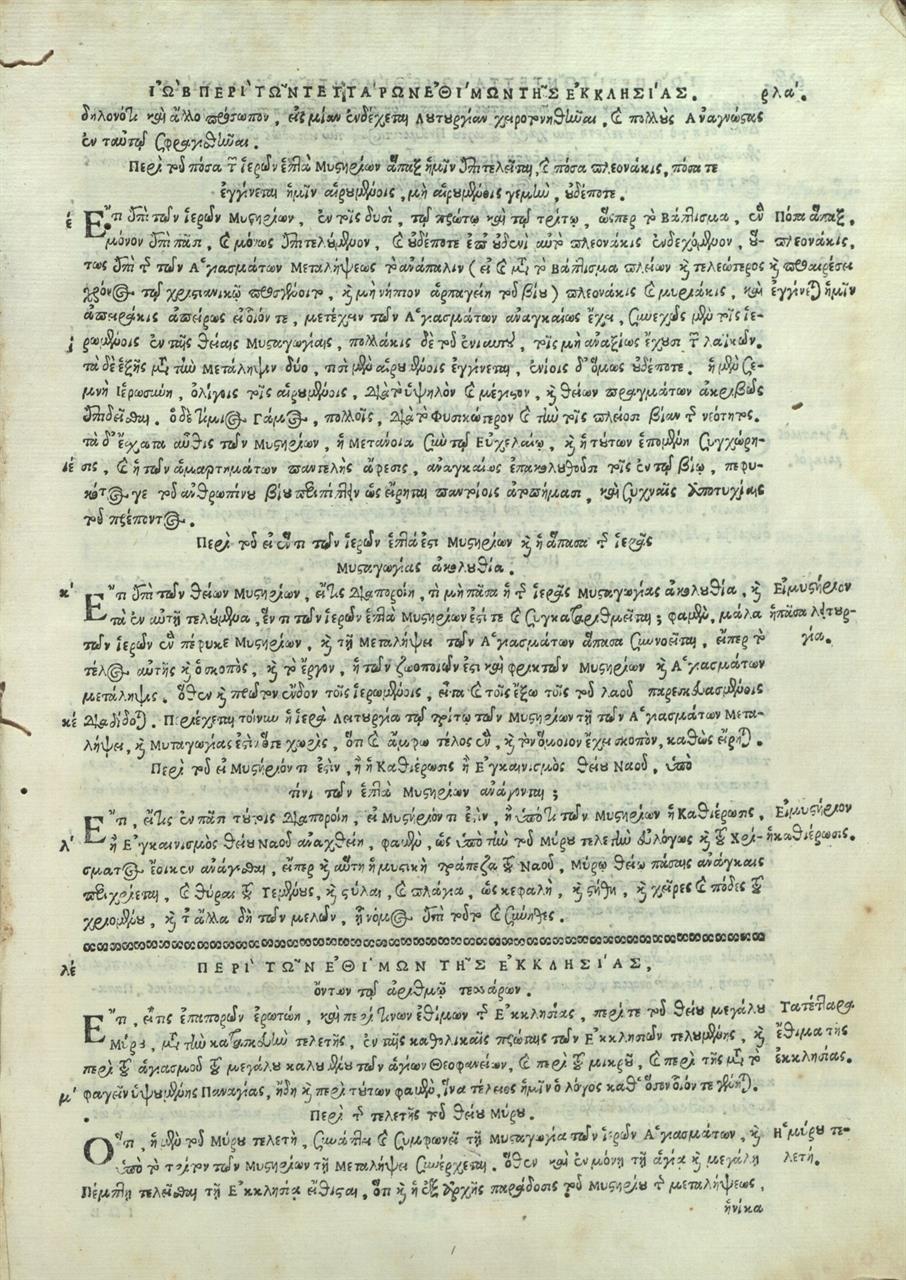 ΙΩΒ ΠΕΡΙ ΤΩΝ ΤΕΤΤΑΡΩΝ ΕΘΙΜΩΝ ΤΗΣ ΕΚΚΛΗΣΙΑΣ. ρλα΄.
δηλονότι καὶ ἄλλο πρόσωπον, εἰς μίαν ἐνδέχεται Λυτυργίαν χειροτονηθῆναι, καὶ πολλοὺς Ἀναγνώστας
ἐν ταὐτῷ σφραγισθῆναι.
Περὶ τοῦ πόσα τῶν ἱερῶν ἑπτὰ Μυστηρίων ἅπαξ ἡμῖν ἐπιτελεῖται, καὶ πόσα πλεονάκις, πόσα τε
ἐγγίνεται ἡμῖν αἱρουμένοις, μὴ αἱρουμένοις γεμὴν, οὐδέποτε.
έ Ἔτι ἐπὶ τῶν ἱερῶν Μυστηρίων, ἐν τοῖς δυσὶ, τῷ πρώτῳ καὶ τῷ τρίτῳ, ὥσπερ τὸ Βάπτισμα, ὂν Πόσα ἅπαξ.
μόνον ἐπὶ πᾶσι, καὶ μόνως ἐπιτελούμενον, καὶ οὐδέποτε ἐπ' οὐδενὶ αὐτὸ πλεονάκις ἐνδεχόμενον, οὕ- πλεονάκις,
τως ἐπὶ τῆς τῶν Ἁγιασμάτων Μεταλήψεως τὸ ἀνάπαλιν (εἰ καὶ μετὰ τὸ Βάπτισμα πλείων καὶ τελεώτερος καὶ προαιρέσει
χρόνος τῷ χριστιανικῷ προσγένοιτο, καὶ μὴ νήπιον ἁρπαγείη τοῦ βίου) πλεονάκις καὶ μυριάκις, καὶ ἐγγίνεται ἡμῖν
ἀπειράκις ἀπείρως εἰ οἷόν τε, μετέχειν τῶν Ἁγιασμάτων ἀναγκαίως ἔχει, συνεχῶς μὲν τοῖς ἱε-
ί ρωμένοις ἐν ταῖς θείαις Μυσταγωγίαις, πολλάκις δὲ τοῦ ἐνιαυτοῦ, τοῖς μὴ ἀναξίως ἔχουσι τῶν λαϊκῶν.
τὰ δὲ ἑξῆς μετὰ τὴν Μετάληψιν δύο, τισὶ μὲν αἱρουμένοις ἐγγίνεται, ἐνίοις δ' ὅμως οὐδέποτε. ἡ μὲν Σε-
μνὴ Ἱερωσύνη, ὀλίγοις τοῖς αἱρουμένοις, διὰ τὸ ὑψηλὸν καὶ μέγιστον, καὶ θείων πραγμάτων ἀκριβῶς
ἐπιδεῖσθαι. ὁ δὲ τίμιος Γάμος, πολλοῖς, διὰ τὸ Φυσικώτερον καὶ τὴν τοῖς πλείοσι βίαν τῆς νεότητος.
τὰ δ' ἔσχατα αὖθις τῶν Μυστηρίων, ἡ Μετάνοια σὺν τῷ Εὐχελαίῳ, καὶ ἡ τούτων ἑπομένη Συγχώρη-
ιέ σις, καὶ ἡ τῶν ἁμαρτημάτων παντελὴς ἄφεσις, ἀναγκαίως ἐπακολουθοῦσι τοῖς ἐν τῷ βίῳ, πεφυ-
κότος γε τοῦ ἀνθρωπίνου βίου περιπίπτειν ὡς εἴρηται παντοίοις ἀτοπήμασι, καὶ συχναῖς ἀποτυχίαις
τοῦ πρέποντος.
Περὶ τοῦ εἰ ἕν τι τῶν ἱερῶν ἑπτά ἐστι Μυστηρίων καὶ ἡ ἅπασα τῆς ἱερᾶς
Μυσταγωγίας ἀκολουθία.
κ΄ Ἔτι ἐπὶ τῶν θείων Μυστηρίων, εἴ τις διαποροίη, τί μὴ πᾶσα ἡ τῆς ἱερᾶς Μυσταγωγίας ἀκολουθία, καὶ Εἰ μυστήριον
τὰ ἐν αὐτῇ τελούμενα, ἕν τι τῶν ἱερῶν ἑπτὰ Μυστηρίων ἐστί τε καὶ συγκαταριθμεῖται; φαμὲν, μάλα ἡ πᾶσα λιτουρ-
τῶν ἱερῶν ὂν πέφυκε Μυστηρίων, καὶ τῇ Μεταλήψει τῶν Ἁγιασμάτων ἅπασα συννοεῖται, εἴπερ τὸ γία.
τέλος αὐτῆς καὶ ὁ σκοπὸς, καὶ τὸ ἔργον, ἡ τῶν ζωοποιῶν ἐστι καὶ φρικτῶν Μυστηρίων καὶ Ἁγιασμάτων
μετάληψις. ὅθεν καὶ πρῶτον ἔνδον τοῖς ἱερωμένοις, εἶτα καὶ τοῖς ἔξω τοῖς τοῦ λαοῦ παρεσκευασμένοις
κέ διαδίδοται. Περιέχεται τοίνυν ἡ ἱερὰ Λειτουργία τῷ τρίτῳ τῶν Μυστηρίων τῇ τῶν Ἁγιασμάτων Μετα-
λήψει, καὶ Μυσταγωγίας ἐστὶν οὔτε χωρὶς, ὅτι καὶ ἄμφω τέλος ἓν, καὶ τὸν ὅμοιον ἔχει σκοπὸν, καθὼς εἴρηται.
Περὶ τοῦ εἰ Μυστήριόν τι ἐστὶν, ἢ ἡ Καθιέρωσις ἢ Ἐγκαινισμὸς θείου Ναοῦ, ὑπὸ
τίνι τῶν ἑπτὰ Μυστηρίων ἀνάγονται;
Ἔτι, εἴ τις ἐν πᾶσι τούτοις διαποροίη, εἰ Μυστήριόν τι ἐστὶν, ἢ ὑπό τι τῶν Μυστηρίων ἡ Καθιέρωσις, Εἰ μυστήριον
λ΄ ἢ Ἐγκαινισμὸς θείου Ναοῦ ἀναχθείη, φαμὲν, ὡς ὑπὸ τὴν τοῦ Μύρου τελετὴν εὐλόγως καὶ τοῦ Χρί- ἡ καθιέρωσις.
σματος ἔοικεν ἀνάγεσθαι, εἴπερ καὶ αὕτη ἡ μυστικὴ τράπεζα τοῦ Ναοῦ, Μύρῳ θείῳ πάσης ἀνάγκαις
περιχρίεται, καὶ θύραι τοῦ Τεμένους, καὶ στύλαι, καὶ πλάγια, ὡς κεφαλὴ, καὶ στήθη, καὶ χεῖρες καὶ πόδες τοῦ
χριομένου, καὶ τἄλλα δὴ τῶν μελῶν, ᾗ νόμος ἐπὶ τούτῳ καὶ σύνηθες.
λέ ΠΕΡΙ ΤΩΝ ΕΘΙΜΩΝ ΤΗΣ ΕΚΚΛΗΣΙΑΣ,
ὄντων τῷ ἀριθμῷ τεσσάρων.
Ἔτι, εἴ τις ἐπαπορῶν ἐρωτῴη, καὶ περί τινων ἐθίμων τῆς Ἐκκλησίας, περί τε τοῦ θείου μεγάλου Τὰ τέτταρα
Μύρου, μετὰ τὴν κατασκευὴν τελετῆς, ἐν ταῖς καθολικαῖς πρώταις τῶν Ἐκκλησιῶν τελουμένης, καὶ ἔθιμα τῆς
περὶ τοῦ ἁγιασμοῦ τοῦ μεγάλου καλουμένου τῶν ἁγίων Θεοφανείων, καὶ περὶ τοῦ μικροῦ, καὶ περὶ τῆς μετὰ τὸ ἐκκλησίας.
μ΄ φαγεῖν ὑψουμένης Παναγίας, ἤδη καὶ περὶ τούτων φαμὲν, ἵνα τέλειος ἡμῖν ὁ λόγος καθ' ὅσον οἷόν τε γένηται.
Περὶ τῆς τελετῆς τοῦ θείου Μύρου.
Ὅτι, ἡ μὲν τοῦ Μύρου τελετὴ, συνάπτει καὶ συμφωνεῖ τῇ Μυσταγωγίᾳ τῶν ἱερῶν Ἁγιασμάτων, καὶ Ἡ μύρου τε-
ὑπὸ τὸ τρίτον τῶν Μυστηρίων τῇ Μεταλήψει συνέρχεται. ὅθεν καὶ ἐν μόνῃ τῇ ἁγίᾳ καὶ μεγάλῃ λετή.
Πέμπτῃ τελεῖσθαι τῇ Ἐκκλησίᾳ εἴθισται, ὅτι καὶ ἡ ἐξ ἀρχῆς παράδοσις τοῦ Μυστηρίου τῆς μεταλήψεως,
ἡνίκα